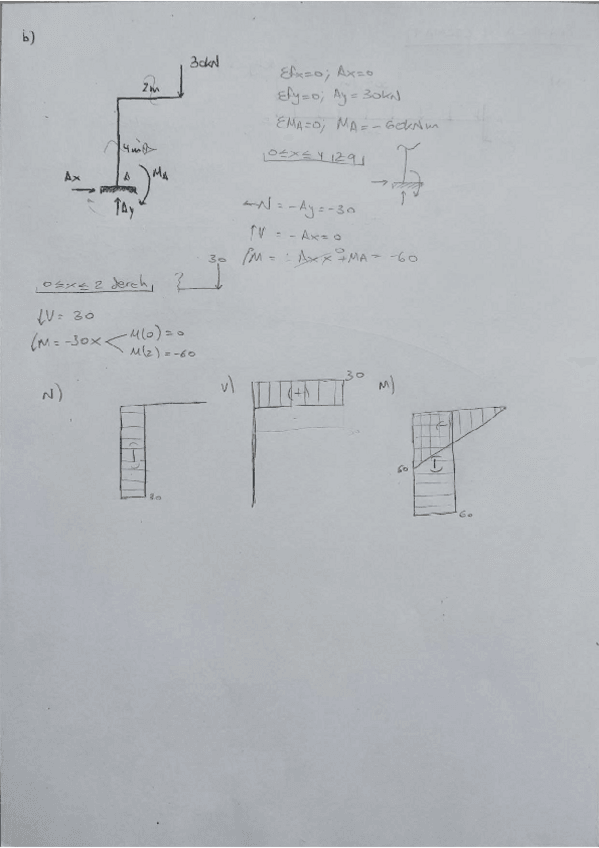 b)
30kN
2m
4m
Ax
A
MA
Ay
Σfx=0; Ax=0
Σfy=0; Ay=30kN
ΣMA=0; MA=-60kNm
0≤x≤4 izq
N = -Ay = -30
V = -Ax = 0
M = -Ax x + MA = -60
0
0≤x≤2 derch
30
V = 30
M = -30x
M(0) = 0
M(2) = -60
N)
(-)
30
V)
(+)
30
M)
(-)
60
60